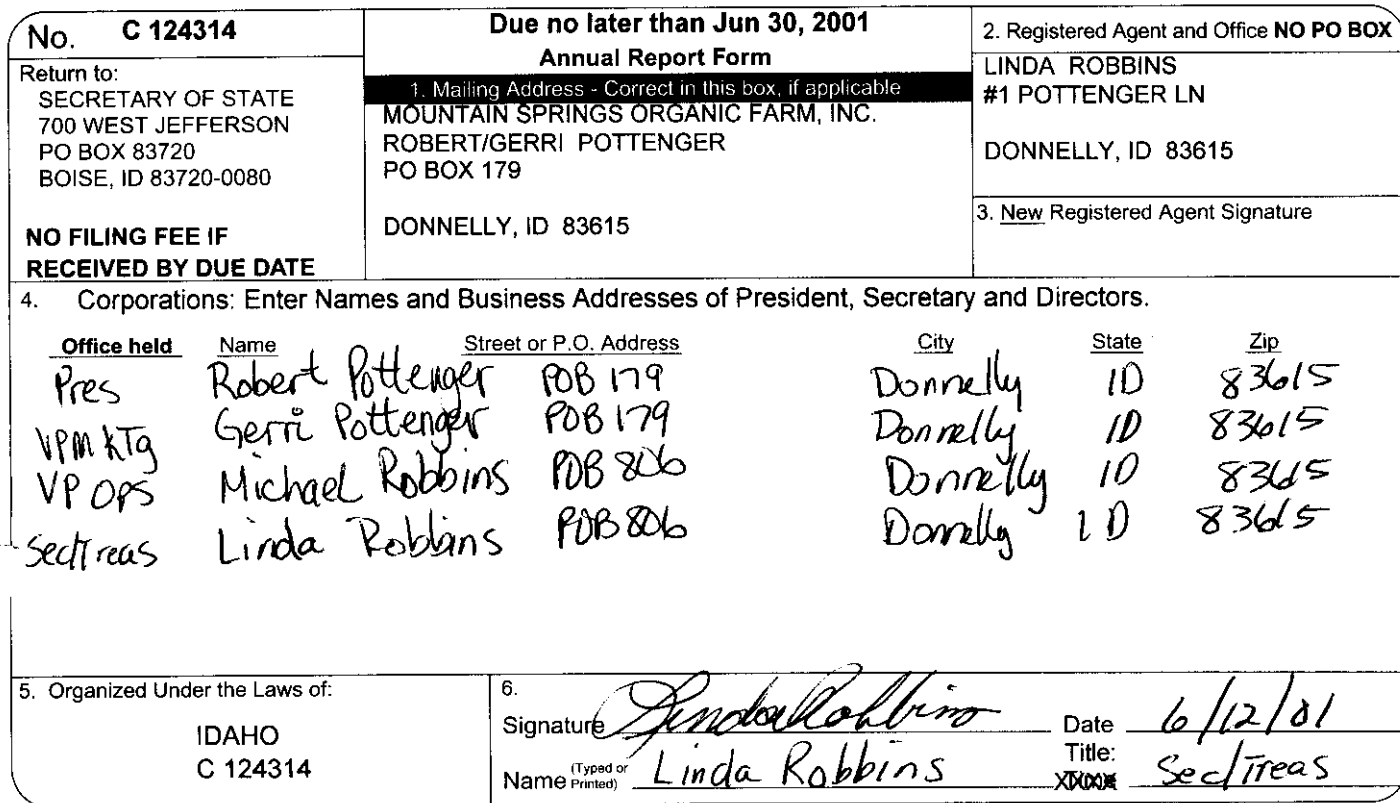 No. C 124314
Return to:
SECRETARY OF STATE
700 WEST JEFFERSON
PO BOX 83720
BOISE, ID 83720-0080
NO FILING FEE IF
RECEIVED BY DUE DATE
Due no later than Jun 30, 2001
Annual Report Form
1. Mailing Address - Correct in this box, if applicable
MOUNTAIN SPRINGS ORGANIC FARM, INC.
ROBERT/GERRI POTTENGER
PO BOX 179
DONNELLY, ID 83615
2. Registered Agent and Office NO PO BOX
LINDA ROBBINS
#1 POTTENGER LN
DONNELLY, ID 83615
3. New Registered Agent Signature
4. Corporations: Enter Names and Business Addresses of President, Secretary and Directors.
Office held Name Street or P.O. Address City State Zip
Pres Robert Pottenger POB 179 Donnelly ID 83615
VP MKTg Gerri Pottenger POB 179 Donnelly ID 83615
VP OPS Michael Robbins POB 806 Donnelly ID 83615
Sec/Treas Linda Robbins POB 806 Donnelly ID 83615
5. Organized Under the Laws of:
IDAHO
C 124314
6.
Signature Linda Robbins Date 6/12/01
Name (Typed or Printed) Linda Robbins Title: Sec/Treas